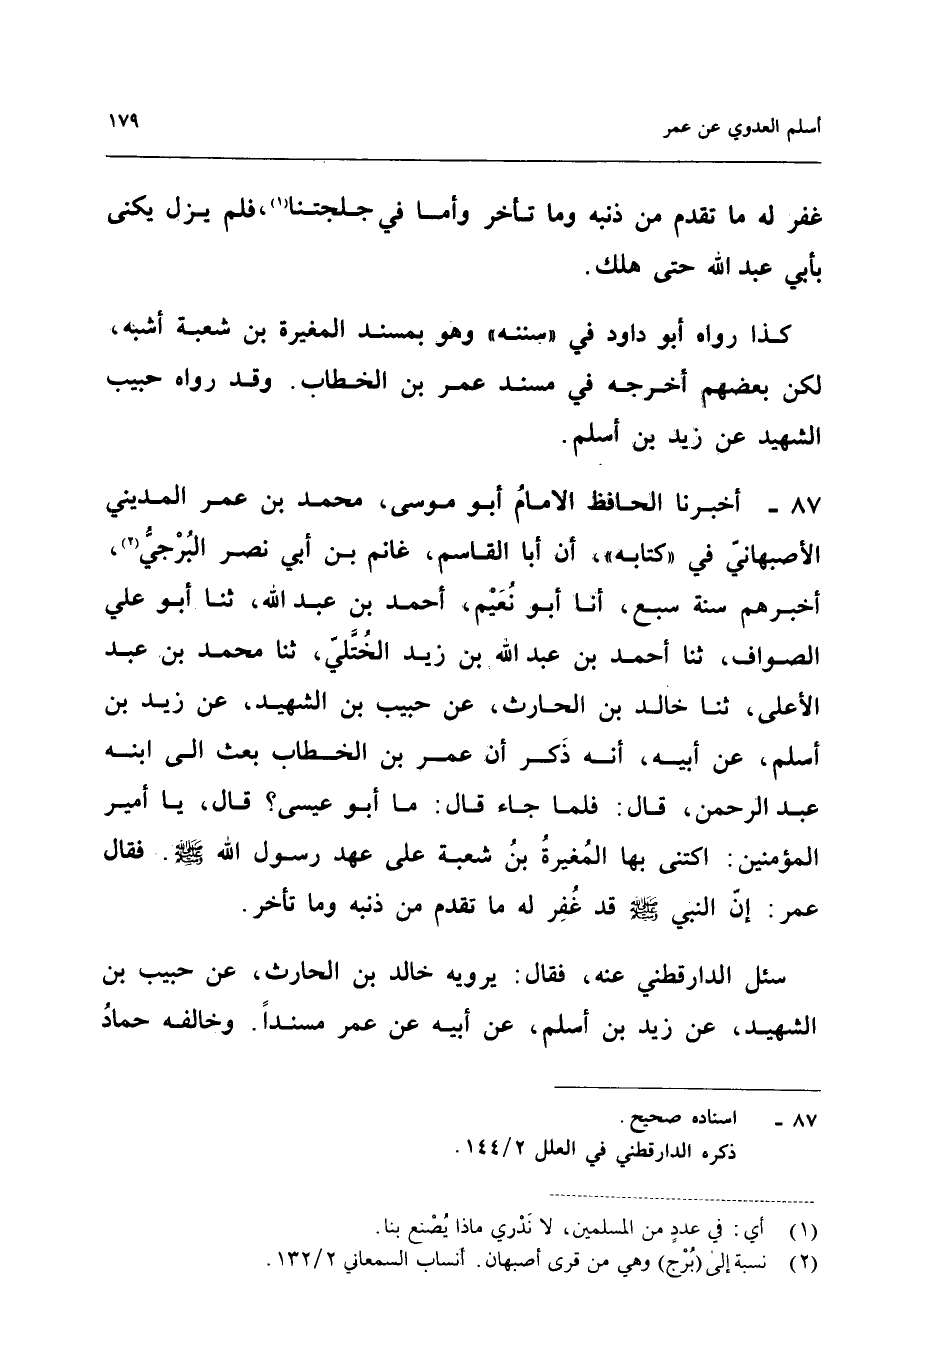 أسلم العدوي عن عمر ١٧٩
غفر له ما تقدم من ذنبه وما تأخر وأما في جلجتنا(١)، فلم يزل يكنى
بأبي عبد الله حتى هلك.
كذا رواه أبو داود في «سننه» وهو بمسند المغيرة بن شعبة أشبه،
لكن بعضهم أخرجه في مسند عمر بن الخطاب. وقد رواه حبيب
الشهيد عن زيد بن أسلم.
٨٧ - أخبرنا الحافظ الامامُ أبو موسى، محمد بن عمر المديني
الأصبهانيّ في «كتابه»، أن أبا القاسم، غانم بن أبي نصر البُرْجيُّ(٢)،
أخبرهم سنة سبع، أنا أبو نُعَيْم، أحمد بن عبد الله، ثنا أبو علي
الصواف، ثنا أحمد بن عبد الله بن زيد الخُتَّليّ، ثنا محمد بن عبد
الأعلى، ثنا خالد بن الحارث، عن حبيب بن الشهيد، عن زيد بن
أسلم، عن أبيه، أنه ذَكر أن عمر بن الخطاب بعث الى ابنه
عبد الرحمن، قال: فلما جاء قال: ما أبو عيسى؟ قال، يا أمير
المؤمنين: اكتنى بها المُغيرةُ بنُ شعبة على عهد رسول الله ﷺ. فقال
عمر: إنّ النبي ﷺ قد غُفِر له ما تقدم من ذنبه وما تأخر.
سئل الدارقطني عنه، فقال: يرويه خالد بن الحارث، عن حبيب بن
الشهيد، عن زيد بن أسلم، عن أبيه عن عمر مسنداً. وخالفه حمادُ
٨٧ - اسناده صحيح.
ذكره الدارقطني في العلل ١٤٤/٢.
(١) أي: في عددٍ من المسلمين، لا نَدْري ماذا يُصْنع بنا.
(٢) نسبة إلى (بُرْج) وهي من قرى أصبهان. أنساب السمعاني ١٣٢/٢.